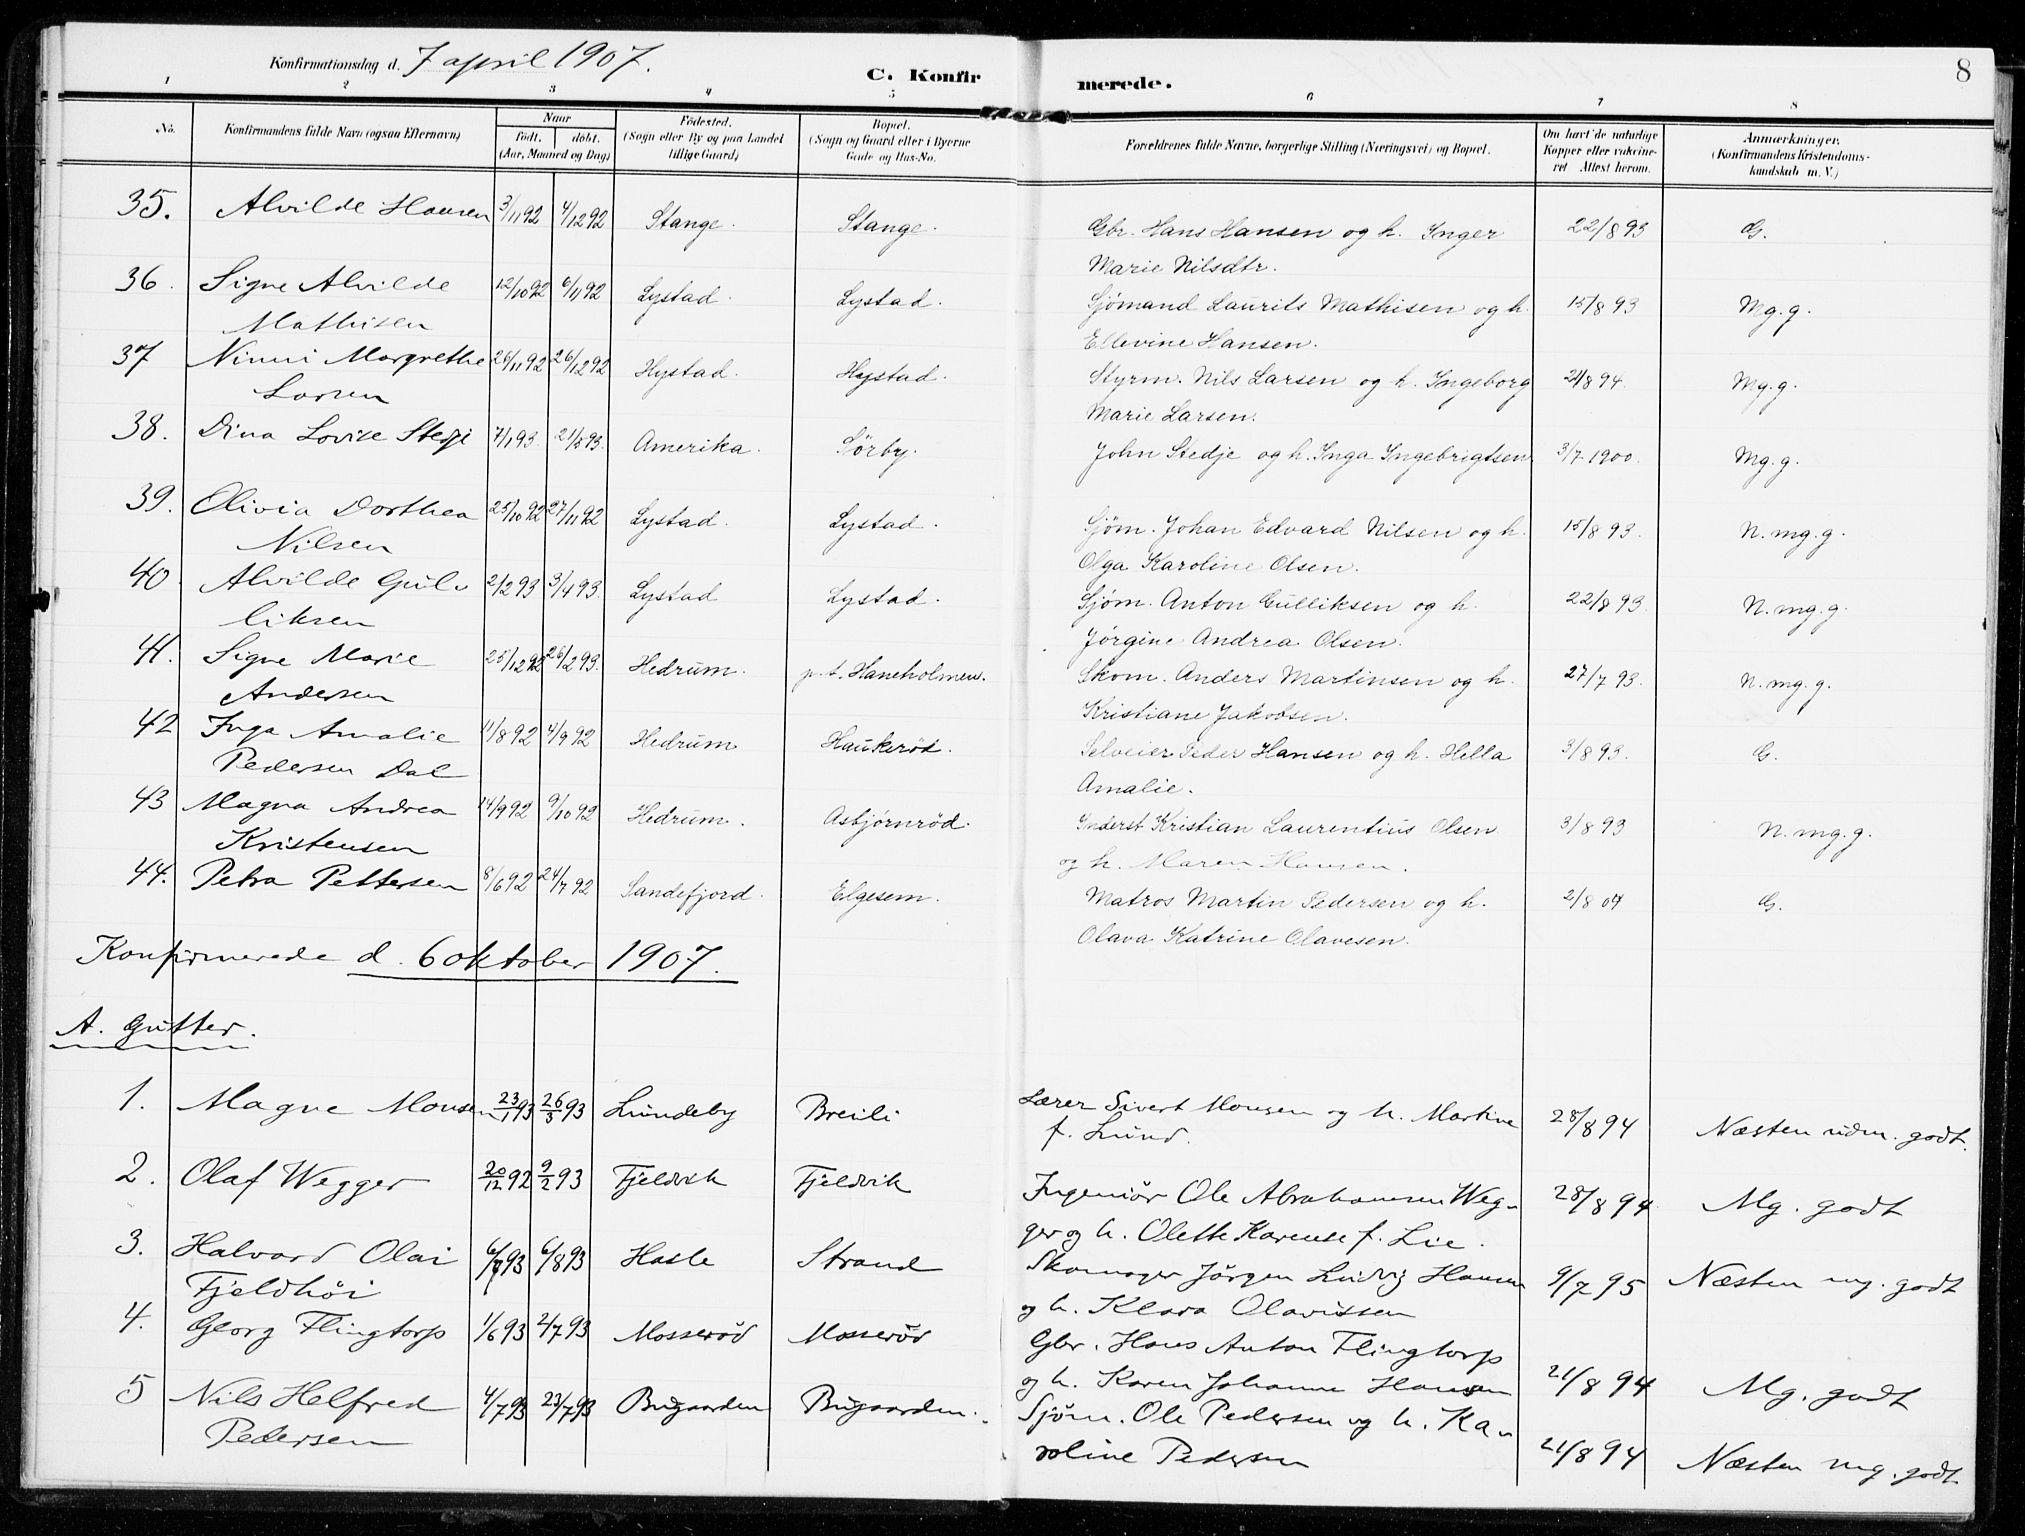 Konfirmationsdag d. 7 april 1907.
C. Konfirmerede.
8
1 2 3 4 5 6 7 8
No. | Konfirmandens fulde Navn (ogsaa Efternavn) | Naar født. døbt. (Aar, Maaned og Dag) | Fødested. (Sogn eller By og paa Landet tillige Gaard) | Bopæl. (Sogn og Gaard eller i Byerne Gade og Hus-No. | Forældrenes fulde Navne, borgerlige Stilling (Næringsvei) og Bopæl. | Om havt de naturlige Kopper eller vakcineret Attest herom. | Anmærkninger. (Konfirmandens Kristendomskundskab m. V.)
35. Alvilde Hansen 3/11 92 4/12 92 Stange. Stange. Gbr. Hans Hansen og h. Inger 22/8 93 G.
Marie Nilsdtr.
36. Signe Alvilde 12/10 92 6/11 92 Lystad. Lystad. Sjømand Laurits Mathisen og h. 15/8 93 Mg. g.
Mathisen Ellevine Hansen.
37 Ninni Margrethe 26/11 92 26/12 92 Hystad. Hystad. Styrm. Nils Larsen og h. Ingeborg 21/8 94. Mg. g.
Larsen Marie Larsen.
38. Dina Lovise Stedje 7/1 93. 21/5 93. Amerika. Sörby. John Stedje og h. Inga Ingebrigtsen 3/7 1900. Mg. g.
39. Olivia Dorthea 25/10 92 27/11 92 Lystad. Lystad. Sjøm. Johan Edvard Nilsen og h. 15/8 93. N. mg. g.
Nilsen Olga Karoline Olsen.
40. Alvilde Gul- 2/2 93 3/4 93. Lystad Lystad. Sjøm. Anton Gulliksen og h. 22/8 93. N. mg. g.
liksen Jørgine Andrea Olsen.
41. Signe Marie 25/12 92 26/2 93. Hedrum. p.t. Haneholmen. Skom. Anders Martinsen og h. 27/7 93. N. mg. g.
Andersen Kristiane Jakobsen.
42 Inga Amalie 11/8 92 4/9 92 Hedrum Haukerød. Selveier Peder Hansen og h. Hella 3/8 93. G.
Pedersen Dal Amalie.
43 Magna Andrea 14/9 92 9/10 92 Hedrum. Asbjørnrød. Inderst Kristian Laurentius Olsen 3/8 93 N. mg. g.
Kristensen og h. Maren Hansen.
44. Petra Pettersen 8/6 92 24/7 92 Sandefjord. Elgesem. Matros Martin Pedersen og h. 2/8 04 G.
Olava Katrine Olavesen.
Konfirmerede d. 6 oktober 1907.
A. Gutter.
1. Magne Monsen 23/1 93 26/3 93 Lundeby Breili Lærer Sivert Monsen og h. Martine 28/8 94 Næsten udm. godt.
f. Lund.
2. Olaf Wegger 20/12 92 9/2 93 Fjeldvik Fjeldvik Ingeniør Ole Abrahamsen Weg- 28/8 94 Mg. godt
ger og h. Olette Karense f. Lie.
3. Halvard Olai 6/7 93 6/8 93 Hasle Strand Skomager Jørgen Ludvig Hansen 9/7 95 Næsten mg. godt
Fjeldhøi og h. Klara Olavissen
4. Georg Flingtorp 1/6 93 2/7 93 Mosserød Mosserød Gbr. Hans Anton Flingtorp
og h. Karen Johanne Hansen 21/8 94 Mg. godt
5 Nils Helfred 4/7 93 23/7 93 Bugaarden Bugaarden. Sjøm. Ole Pedersen og h. Ka-
Pedersen roline Pedersen 21/8 94 Næsten mg. godt